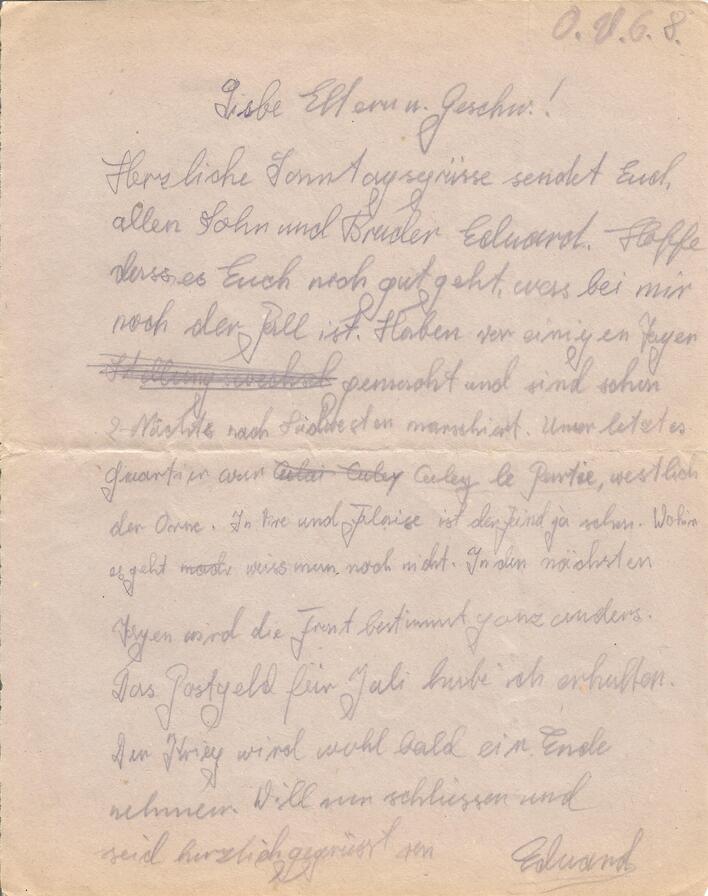 O. U. 6. 8.
Liebe Eltern u. Geschw.!
Herzliche Sonntagsgrüsse sendet Euch
allen Sohn und Bruder Eduard. Hoffe
dass es Euch noch gut geht, was bei mir
noch der Fall ist. Haben vor einigen Tagen
Stellungswechsel gemacht und sind schon
2 Nächte nach Südwesten marschiert. Unser letztes
Quartier war Culey Culey le Partie, westlich
der Orne. In Vire und Falaise ist der Feind ja schon. Wohin
es geht noch weiss man noch nicht. In den nächsten
Tagen wird die Front bestimmt ganz anders.
Das Postgeld für Juli habe ich erhalten.
Der Krieg wird wohl bald ein Ende
nehmen. Will nun schliessen und
seid herzlich gegrüsst von Eduard